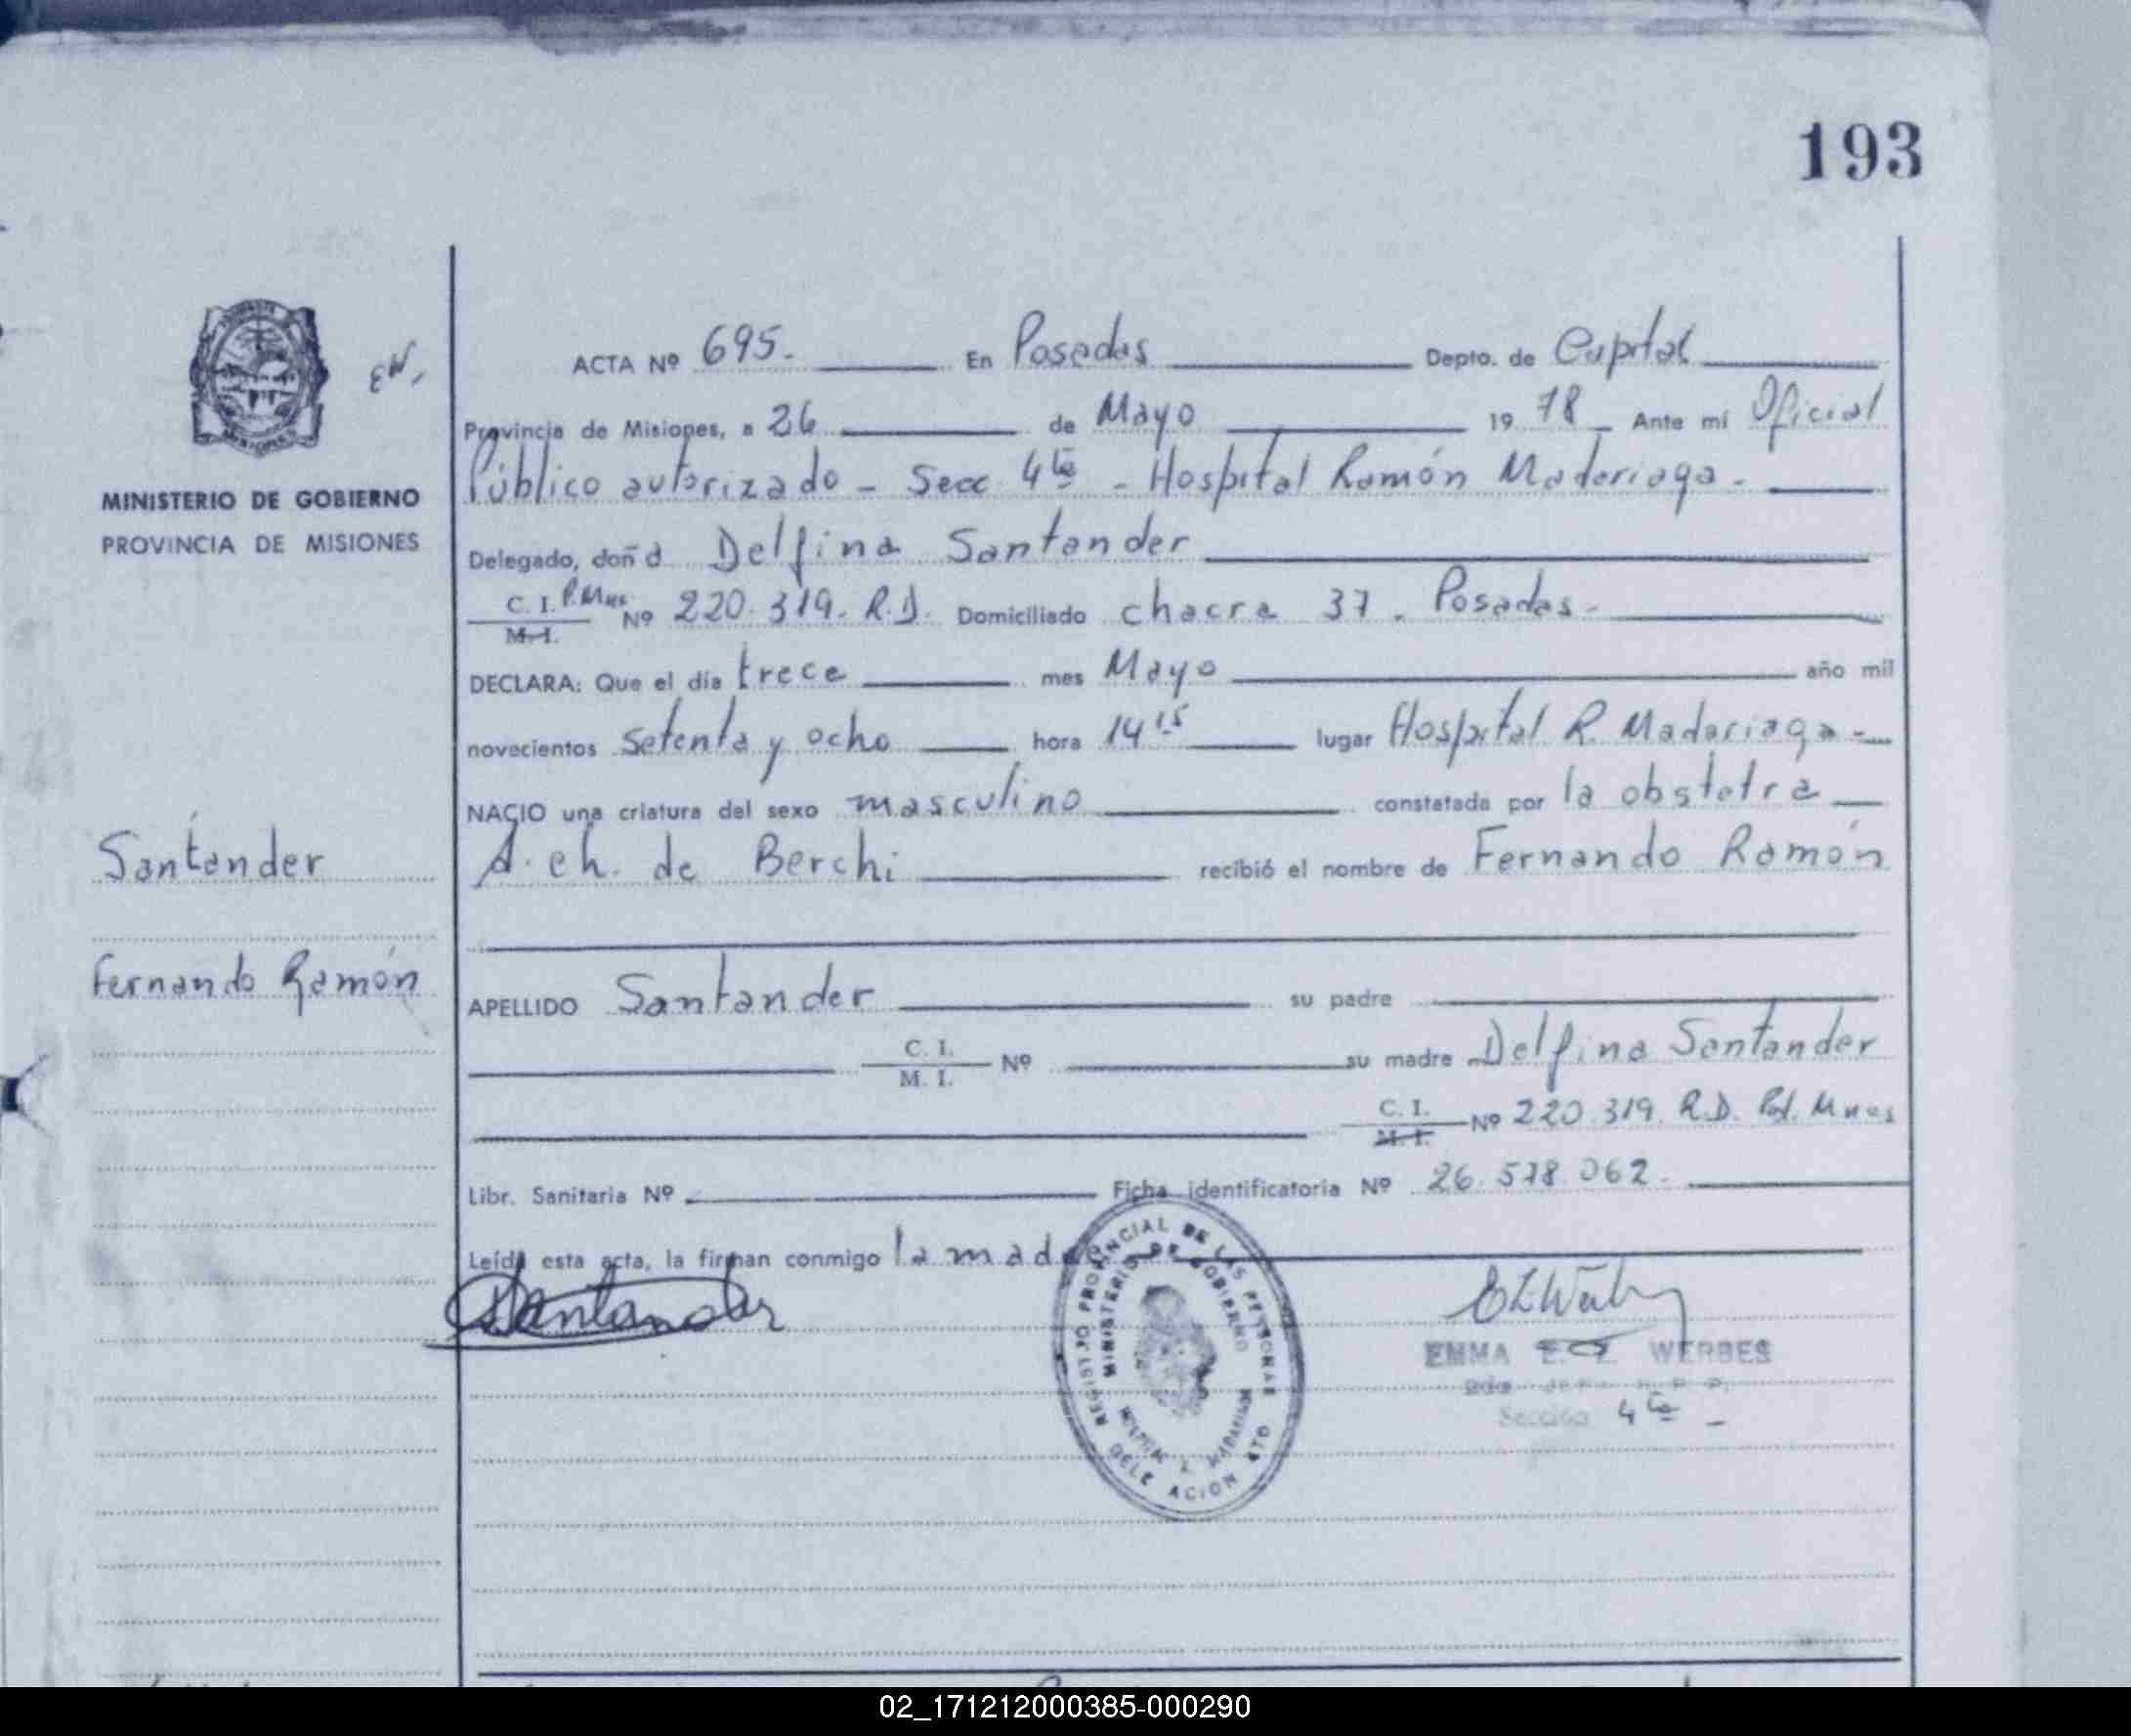 193
EW.
MINISTERIO DE GOBIERNO
PROVINCIA DE MISIONES
Santander
Fernando Ramón
ACTA Nº 695. En Posadas Depto. de Capital
Provincia de Misiones, a 26 de Mayo 19 78 Ante mí Oficial
Público autorizado - Secc 4ta - Hospital Ramón Madariaga -
Delegado, doña Delfina Santander
C. I. P. Mnes
M. I. Nº 220.319. R.D. Domiciliado chacra 37. Posadas-
DECLARA: Que el día trece mes Mayo año mil
novecientos setenta y ocho hora 14 15 lugar Hospital R. Madariaga -
NACIO una criatura del sexo masculino constatada por la obstetra
A. ch. de Berchi recibió el nombre de Fernando Ramón
APELLIDO Santander su padre
C. I.
M. I. Nº su madre Delfina Santander
C. I.
M. I. Nº 220.319. R.D. Pol. Mnes
Libr. Sanitaria Nº Ficha identificatoria Nº 26.578.062.
Leída esta acta, la firman conmigo la madre
Santander
REGISTRO PROVINCIAL DE LAS PERSONAS
MINISTERIO DE GOBIERNO
HOSPITAL R. MADARIAGA
DELEGACION 4TO
EMMA WERBES
Sección 4ta -
02_171212000385-000290